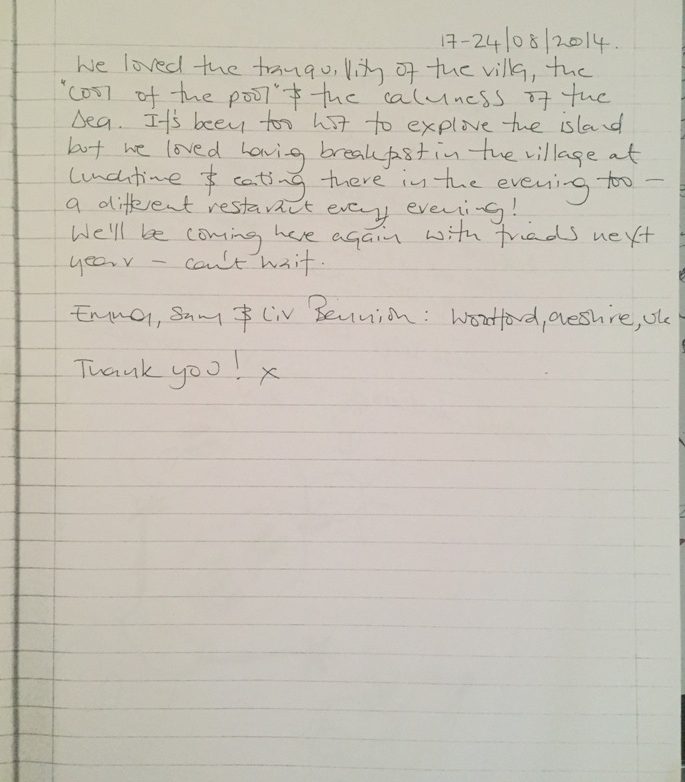 17-24/08/2014.
We loved the tranquillity of the villa, the
"cool of the pool" & the calmness of the
sea. It's been too hot to explore the island
but we loved having breakfast in the village at
lunchtime & eating there in the evening too -
a different restaurant every evening!
We'll be coming here again with friends next
year - can't wait.
Emma, Sam & Liv Bennion: Woodford, Cheshire, UK
Thank you! x